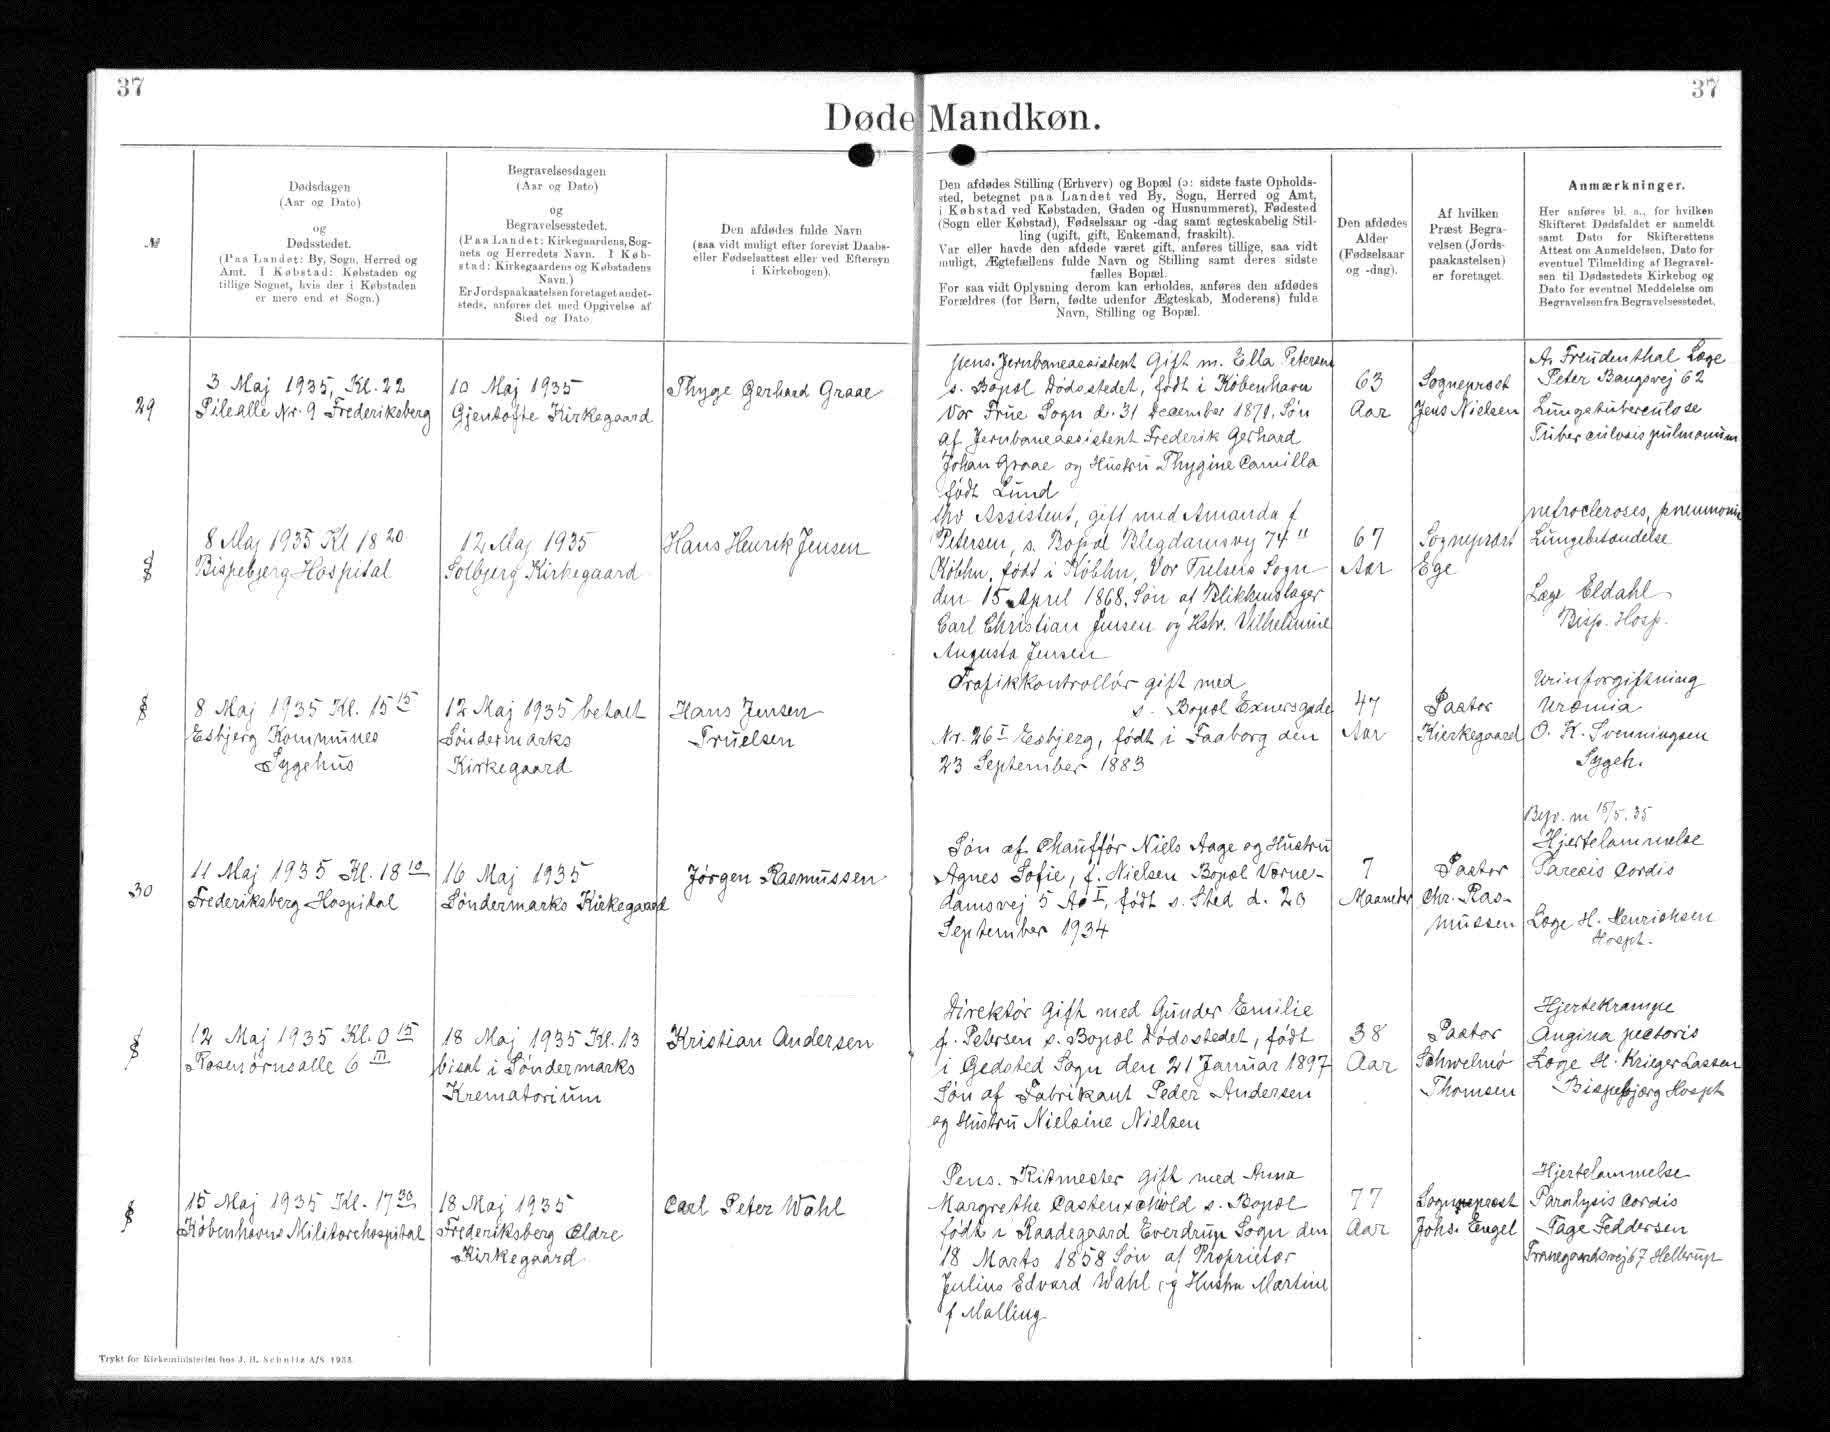 37
37
Døde Mandkøn.
№
Dødsdagen
(Aar og Dato)
og
Dødsstedet.
(Paa Landet: By, Sogn, Herred og
Amt. I Købstad: Købstaden og
tillige Sognet, hvis der i Købstaden
er mere end et Sogn.)
Begravelsesdagen
(Aar og Dato)
og
Begravelsesstedet.
(Paa Landet: Kirkegaardens, Sog-
nets og Herredets Navn. I Køb-
stad: Kirkegaardens og Købstadens
Navn.)
Er Jordspaakastelsen foretaget andet-
steds, anføres det med Opgivelse af
Sted og Dato.
Den afdødes fulde Navn
(saa vidt muligt efter forevist Daabs-
eller Fødselsattest eller ved Eftersyn
i Kirkebogen).
Den afdødes Stilling (Erhverv) og Bopæl (ɔ: sidste faste Opholds-
sted, betegnet paa Landet ved By, Sogn, Herred og Amt,
i Købstad ved Købstaden, Gaden og Husnummeret), Fødested
(Sogn eller Købstad), Fødselsaar og -dag samt ægteskabelig Stil-
ling (ugift, gift, Enkemand, fraskilt).
Var eller havde den afdøde været gift, anføres tillige, saa vidt
muligt, Ægtefællens fulde Navn og Stilling samt deres sidste
fælles Bopæl.
For saa vidt Oplysning derom kan erholdes, anføres den afdødes
Forældres (for Børn, fødte udenfor Ægteskab, Moderens) fulde
Navn, Stilling og Bopæl.
Den afdødes
Alder
(Fødselsaar
og -dag).
Af hvilken
Præst Begra-
velsen (Jords-
paakastelsen)
er foretaget.
Anmærkninger.
Her anføres bl. a., for hvilken
Skifteret Dødsfaldet er anmeldt
samt Dato for Skifterettens
Attest om Anmeldelsen, Dato for
eventuel Tilmelding af Begravel-
sen til Dødsstedets Kirkebog og
Dato for eventuel Meddelelse om
Begravelsen fra Begravelsesstedet.
29
3 Maj 1935, Kl. 22
Pilealle Nr. 9 Frederiksberg
10 Maj 1935
Gjentofte Kirkegaard
Thyge Gerhard Graae
pens. Jernbaneassistent Gift m. Ella Petersen
s. Bopæl Dødsstedet, født i København
Vor Frue Sogn d. 31 December 1871. Søn
af Jernbaneassistent Frederik Gerhard
Johan Graae og Hustru Thygine Camilla
født Lund
63
Aar
Sognepræst
Jens Nielsen
A. Freudenthal Læge
Peter Bangsvej 62
Lungetuberculose
Tuberculosis pulmonum
8 Maj 1935 Kl 18 20
Bispebjerg Hospital
12 Maj 1935
Solbjerg Kirkegaard
Hans Henrik Jensen
Assistent, gift med Amanda f
Petersen, s. Bopæl Blegdamsvej 74
Købhn. født i Købhn, Vor Frelsers Sogn
den 15 April 1868. Søn af Blikkenslager
Carl Christian Jensen og Hstr. Vilhelmine
Augusta Jensen
67
Aar
Sognepræst
Ege
nefroclerosis, pneumonia
Lungebetændelse
Læge Eldahl
Bisp. Hosp.
8 Maj 1935 Kl. 15 15
Esbjerg Kommunes
Sygehus
12 Maj 1935 betalt
Søndermarks
Kirkegaard
Hans Jensen
Truelsen
Trafikkontrollør gift med
s. Bopæl Exnersgade
Nr. 26 I Esbjerg, født i Faaborg den
23 September 1883
47
Aar
Pastor
Kierkegaard
Urinforgiftning
Uræmia
O. K. Svenningsen
Sygeh.
30
11 Maj 1935 Kl. 18 10
Frederiksberg Hospital
16 Maj 1935
Søndermarks Kirkegaard
Jørgen Rasmussen
Søn af Chauffør Niels Aage og Hustru
Agnes Sofie, f. Nielsen Bopæl Værne-
damsvej 5 A I, født s. Sted d. 20
September 1934
7
Maaneder
Pastor
Chr. Ras-
mussen
Begr. m 15/5. 35
Hjertelammelse
Paresis Cordis
Læge H. Henrichsen
Hospt.
12 Maj 1935 Kl. 0 15
Rosenørnsalle 6 III
18 Maj 1935 Kl. 13
bisat i Søndermarks
Krematorium
Kristian Andersen
Direktør gift med Gunder Emilie
f. Petersen s. Bopæl Dødsstedet, født
i Gedsted Sogn den 21 Januar 1897
Søn af Fabrikant Peder Andersen
og Hustru Nielsine Nielsen
38
Aar
Pastor
Schwelmø
Thomsen
Hjertekrampe
Angina pectoris
Læge H. Krieger Lassen
Bispebjærg Hospt
15 Maj 1935 Kl. 17 30
Københavns Militærehospital
18 Maj 1935
Frederiksberg Ældre
Kirkegaard
Carl Peter Wahl
Pens. Ritmester gift med Anna
Margrethe Castenschiold s. Bopæl
født i Raadegaard Everdrup Sogn den
18 Marts 1858 Søn af Proprietær
Julius Edvard Wahl og Hustru Martine
f Malling
77
Aar
Sognepræst
Johs. Engel
Hjertelammelse
Paralysis Cordis
Tage Feddersen
67 Hellerup
Trykt for Kirkeministeriet hos J. H. Schultz A/S 1933.